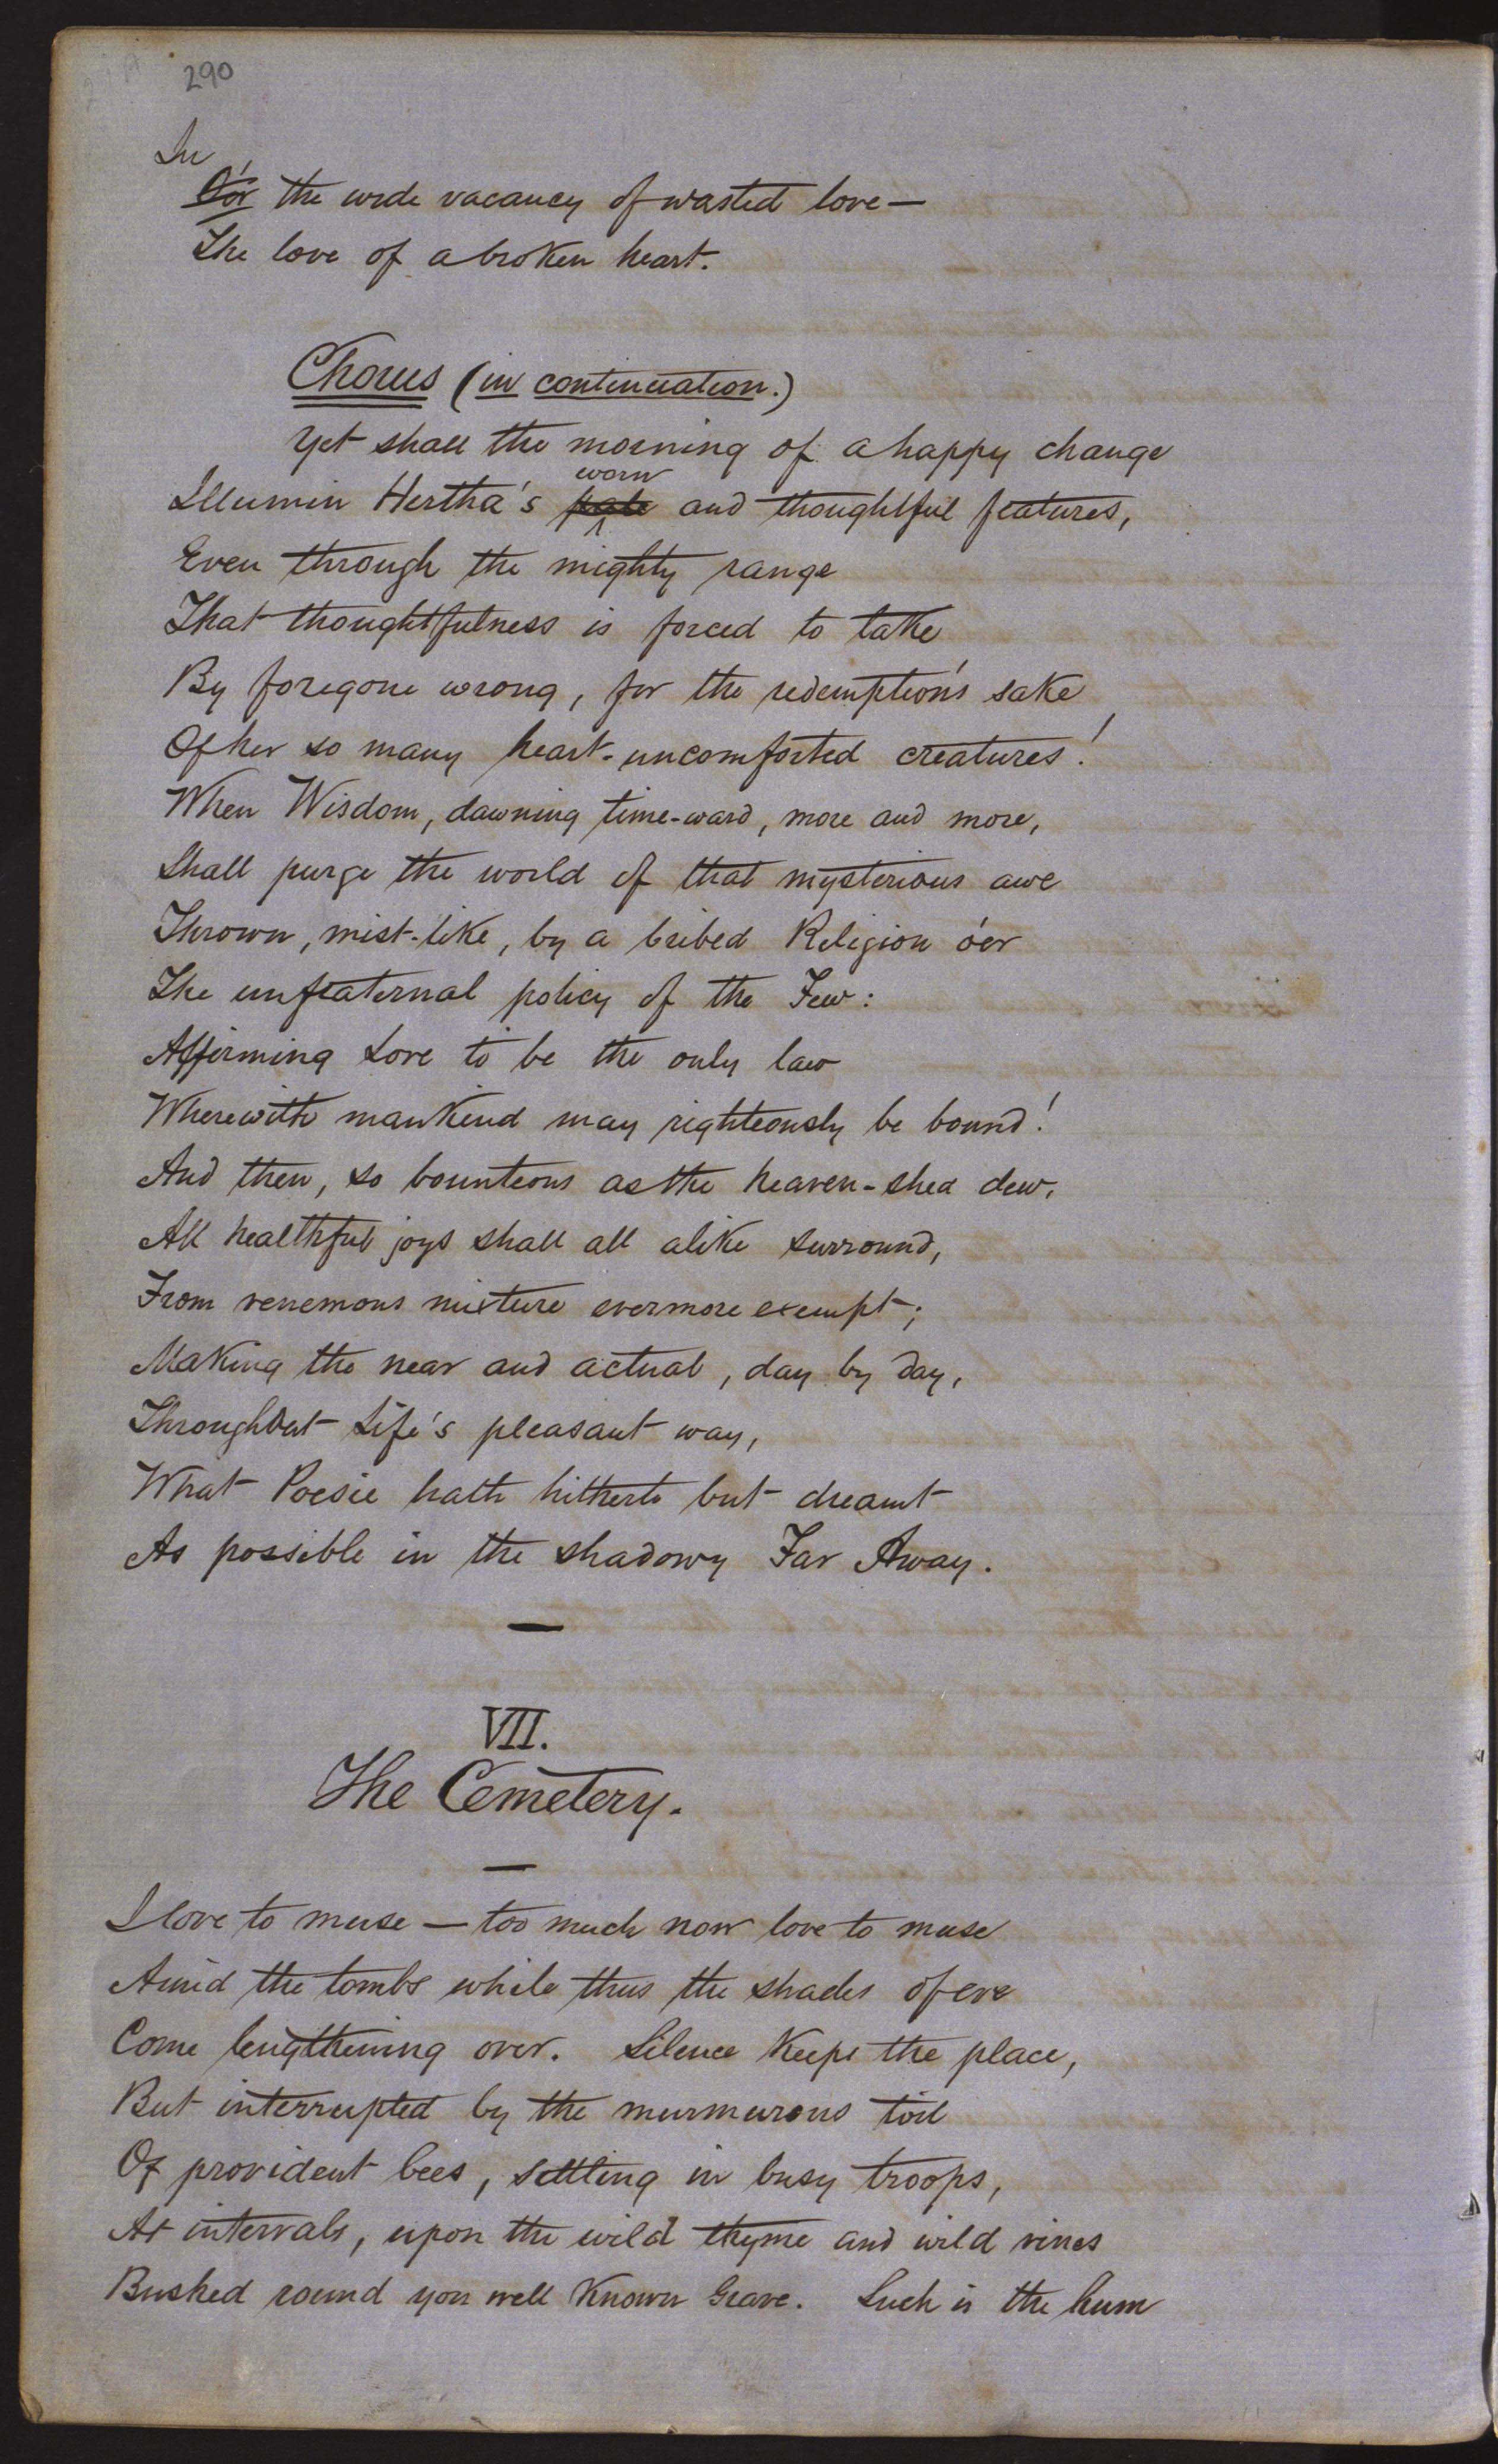 290
In
O'er the wide vacancy of wasted love—
The love of a broken heart.
Chorus (in continuation.)
Yet shall the morning of a happy change
worn
Illumin Hertha's pale and thoughtful features,
Even through the mighty range
That thoughtfulness is forced to take
By foregone wrong, for the redemption's sake
Of her so many heart-uncomforted creatures!
When Wisdom, dawning time-ward, more and more,
Shall purge the world of that mysterious awe
Thrown, mist-like, by a bribed Religion o'er
The unfraternal policy of the Few:
Affirming Love to be the only law
Wherewith mankind may righteously be bound!
And then, so bounteous as the heaven-shed dew,
All healthful joys shall all alike surround,
From venemous mixture evermore exempt;
Making the near and actual, day by day,
Throughout Life's pleasant way,
What Poesie hath hitherto but dreamt
As possible in the shadowy Far Away.
—
VII.
The Cemetery.
—
I love to muse — too much now love to muse
Amid the tombs while thus the shades of eve
Come lengthening over. Silence keeps the place,
But interrupted by the murmurous toil
Of provident bees, settling in busy troops,
At intervals, upon the wild thyme and wild vines
Bushed round yon well known Grave. Such is the hum